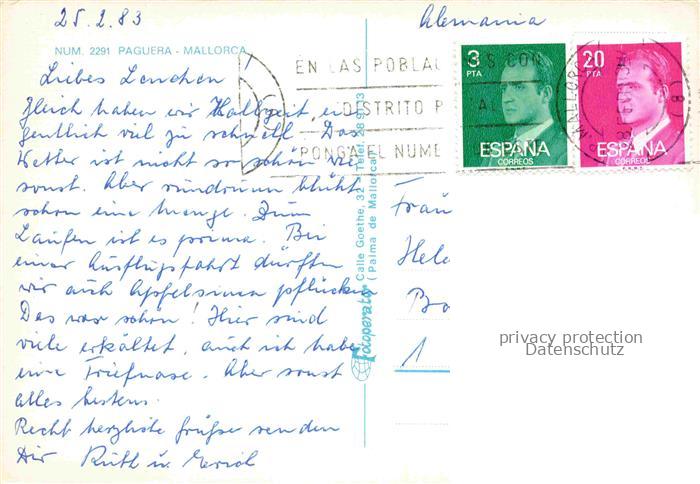 25.2.83
Alemania
NUM. 2291 PAGUERA - MALLORCA
Liebes Lenchen!
Gleich haben wir Halbzeit, ei-
gentlich viel zu schnell. Das
Wetter ist nicht so schön wie
sonst. Aber rundrum blüht
schon eine Menge. Zum
Laufen ist es prima. Bei
einer Ausflugsfahrt durften
wir auch Apfelsinen pflücken
Das war schön! Hier sind
viele erkältet, auch ich habe
eine Triefnase. Aber sonst
alles bestens.
Recht herzliche Grüße senden
Dir Ruth u.
EN LAS POBLAC
S CON
DISTRITO P
AL
PONGA EL NUME
MALLORC
3
PTA
ESPAÑA
CORREOS
20
PTA
ESPAÑA
CORREOS
Fotoperator Calle Goethe, 32 - Telef. 28 91 13
(Palma de Mallorca)
Fräu
Hele
Bo
1
privacy protection
Datenschutz